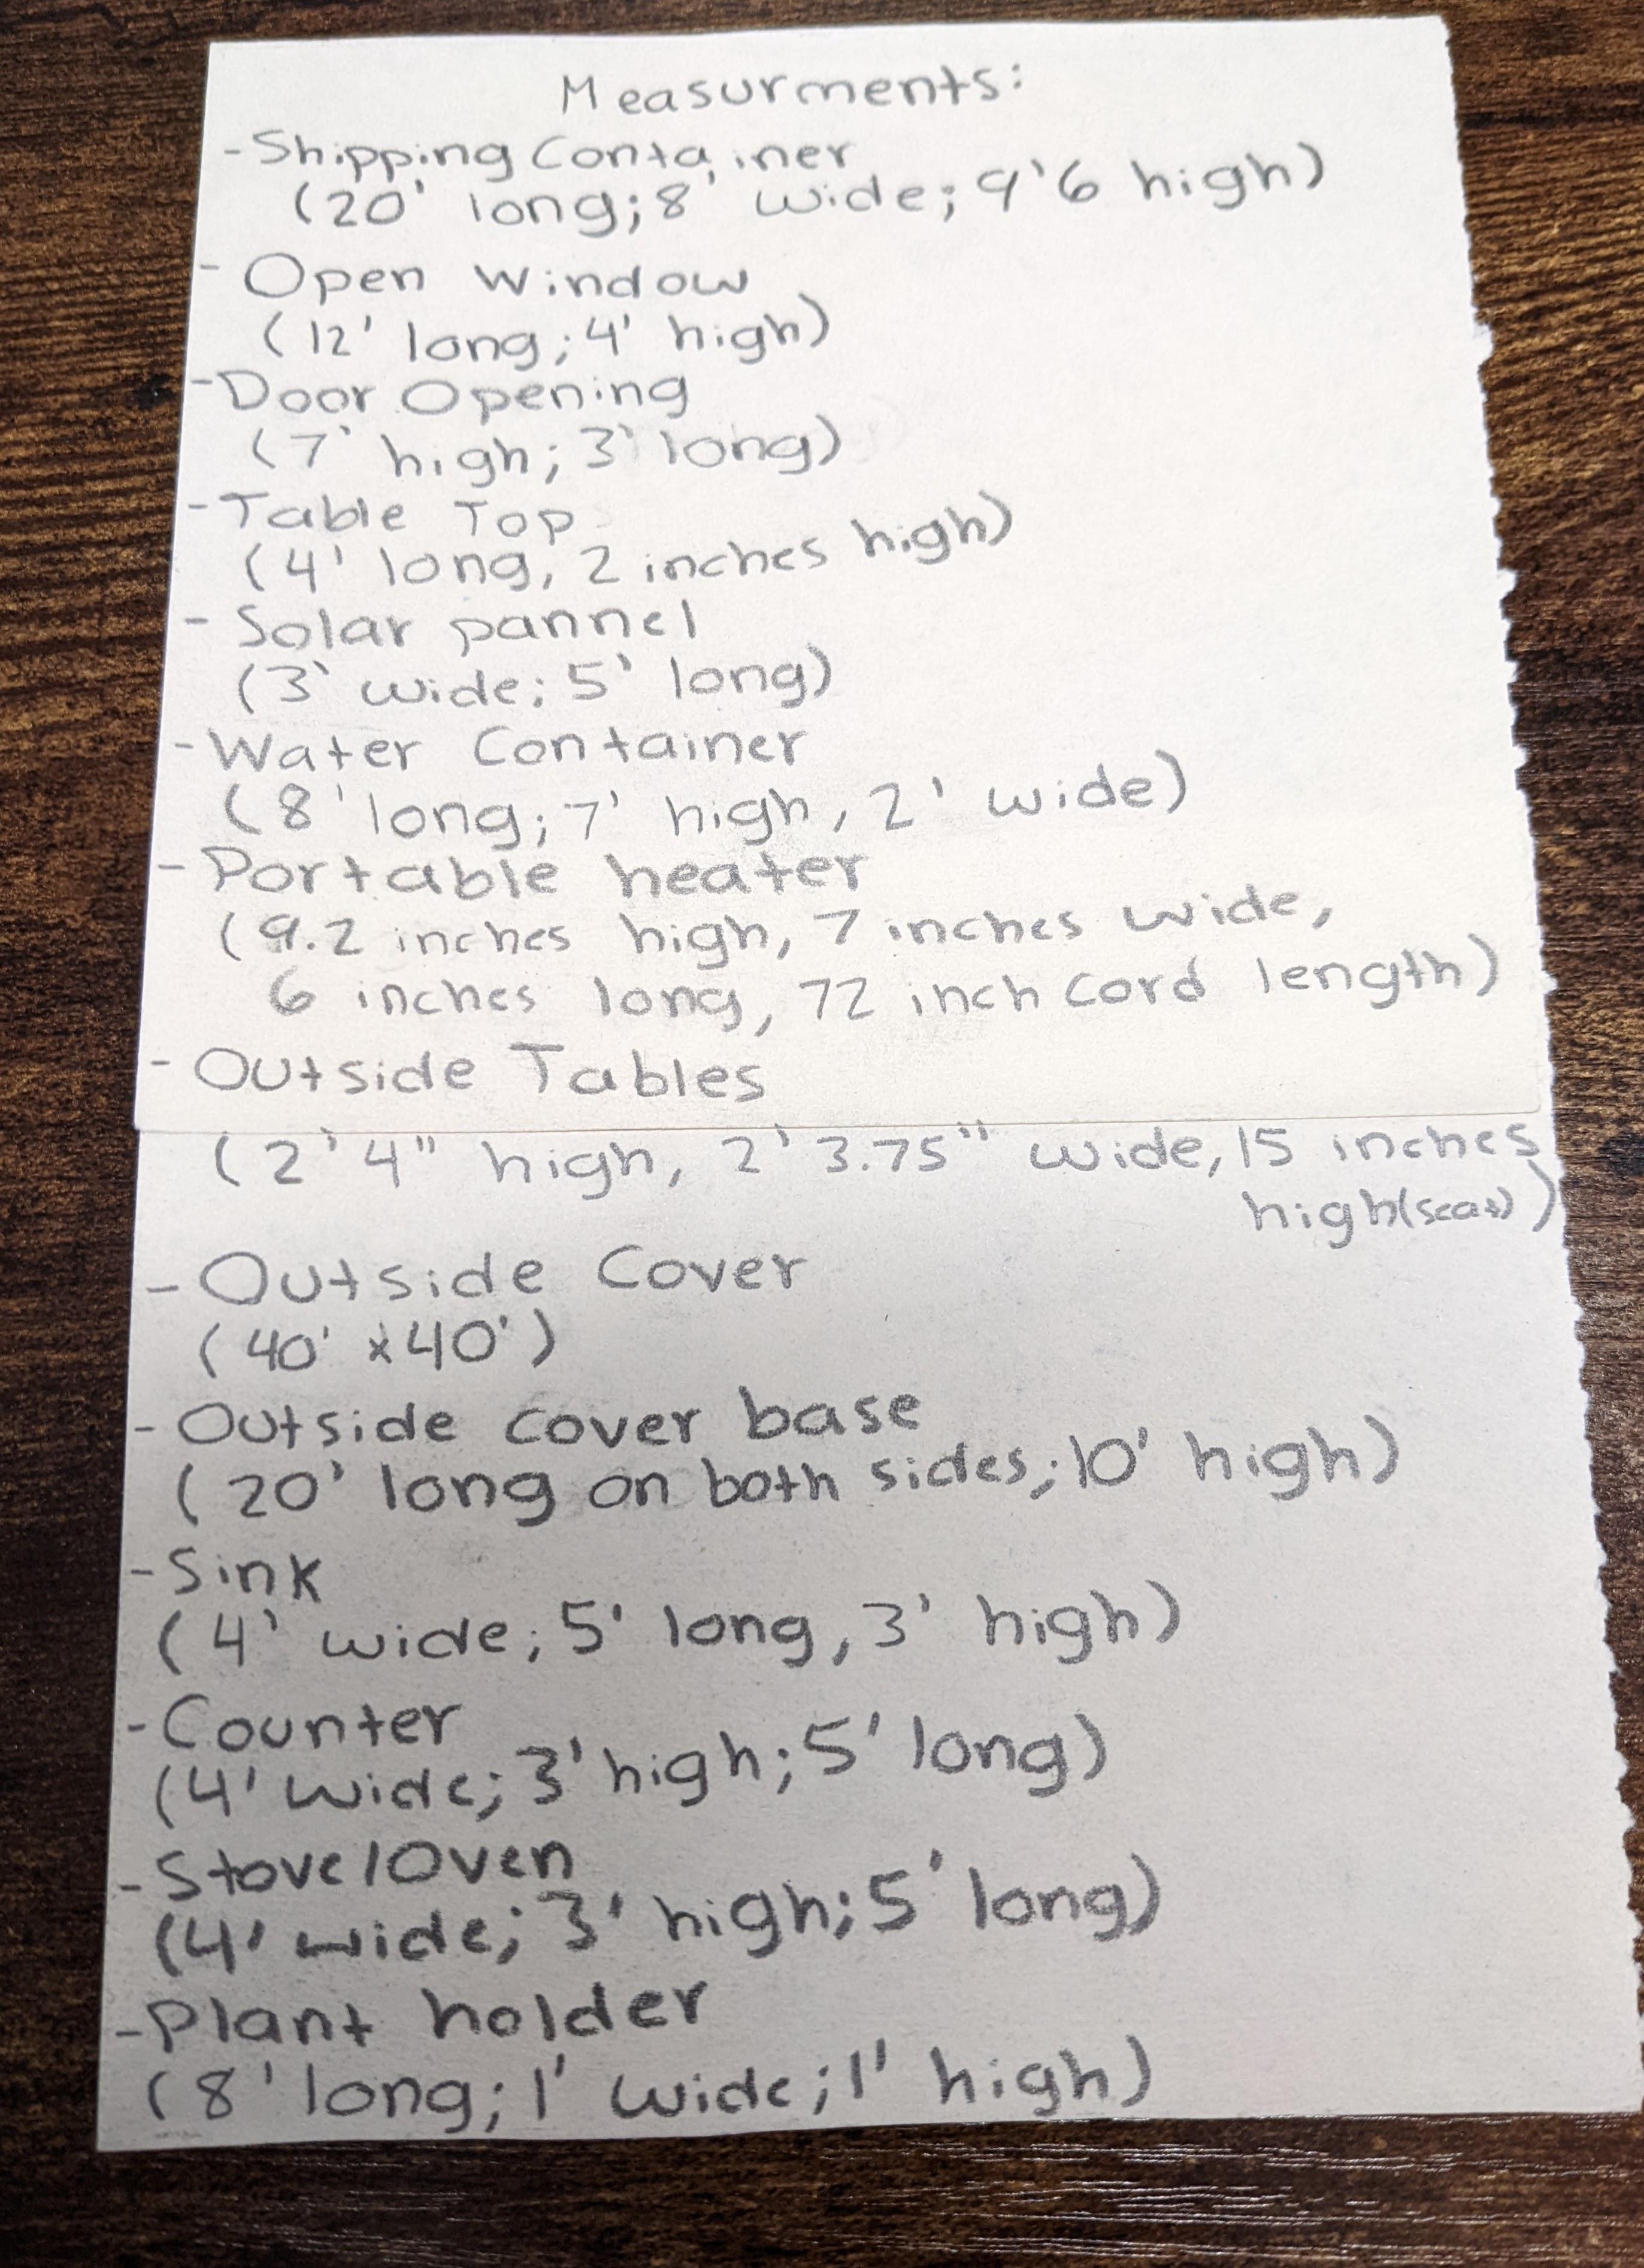 Measurments:
- Shipping Container
(20' long; 8' wide; 9'6 high)
- Open Window
(12' long; 4' high)
- Door Opening
(7' high; 3' long)
- Table Top
(4' long, 2 inches high)
- Solar pannel
(3' wide; 5' long)
- Water Container
(8' long; 7' high, 2' wide)
- Portable heater
(9.2 inches high, 7 inches wide,
6 inches long, 72 inch cord length)
- Outside Tables
(2'4" high, 2'3.75" wide, 15 inches
high (seat))
- Outside Cover
(40' x 40')
- Outside cover base
(20' long on both sides; 10' high)
- Sink
(4' wide; 5' long, 3' high)
- Counter
(4' wide; 3' high; 5' long)
- Stove/Oven
(4' wide; 3' high; 5' long)
- Plant holder
(8' long; 1' wide; 1' high)